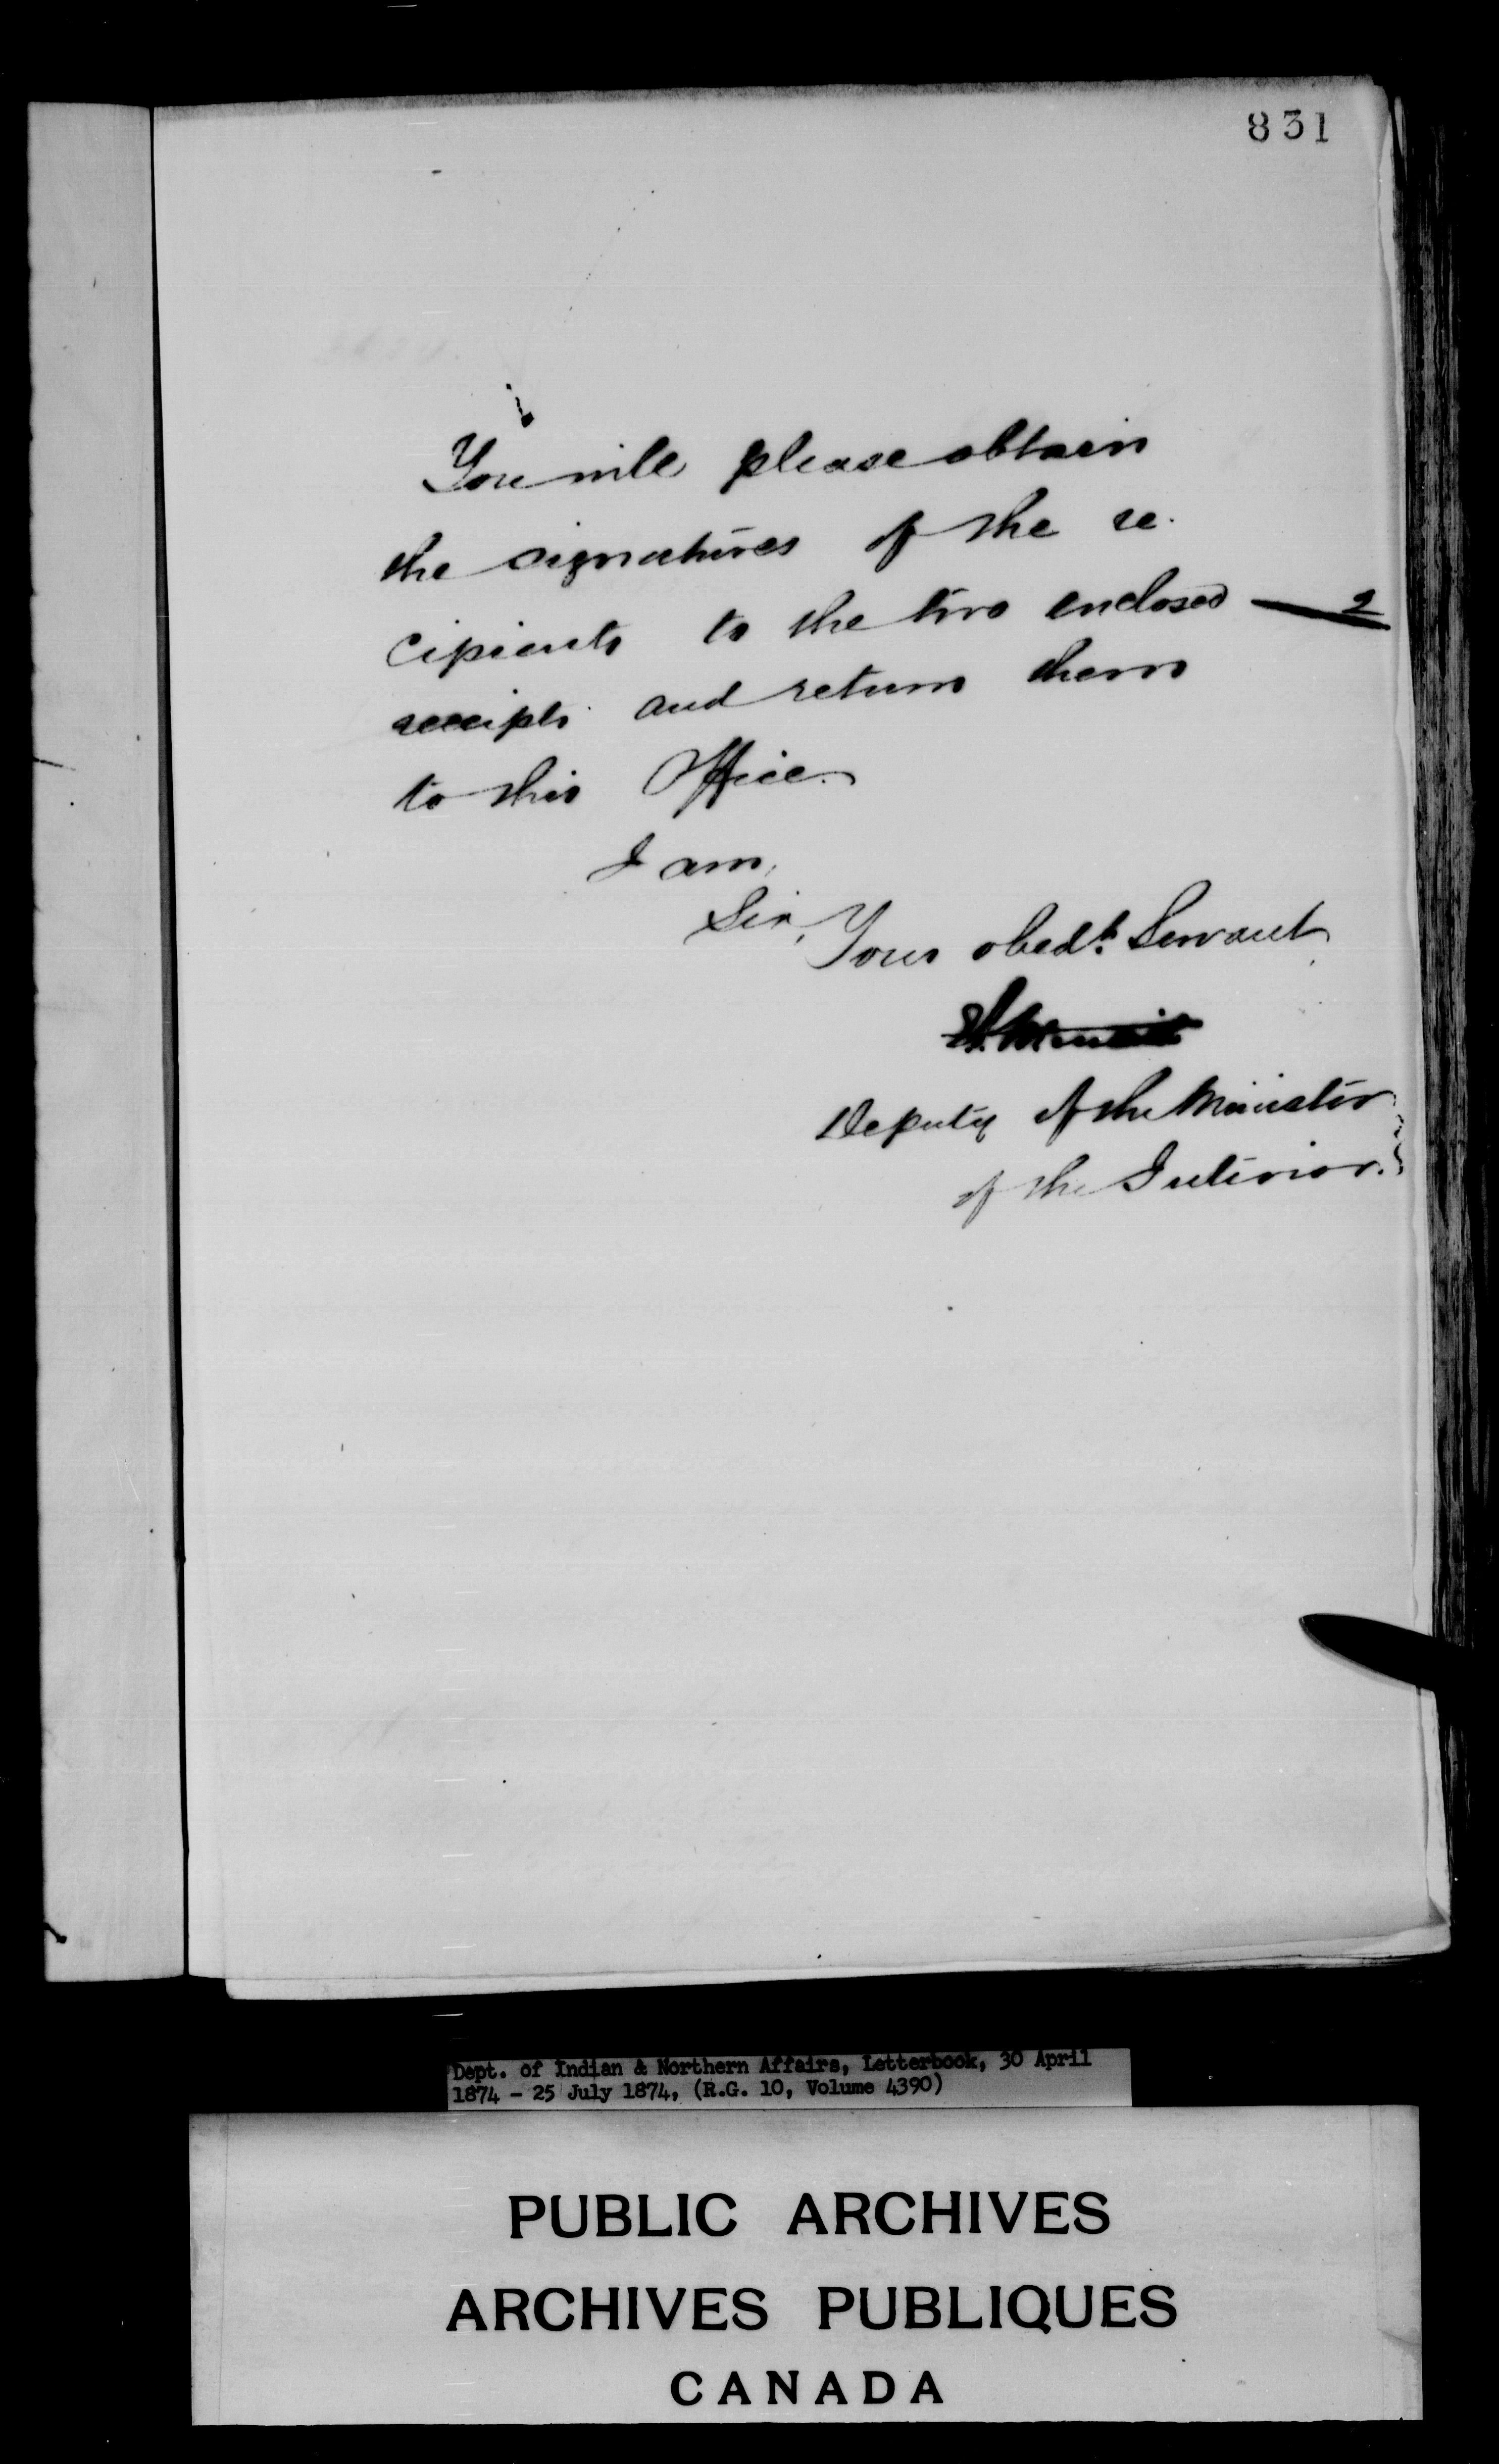 831
You will please obtain
the signatures of the re-
cipients to the two enclosed — 2
receipts and return them
to this Office.
I am,
Sir,
Your obedt. Servant
Deputy of the Minister
of the Interior.
Dept. of Indian & Northern Affairs, Letterbook, 30 April
1874 - 25 July 1874, (R.G. 10, Volume 4390)
PUBLIC ARCHIVES
ARCHIVES PUBLIQUES
CANADA